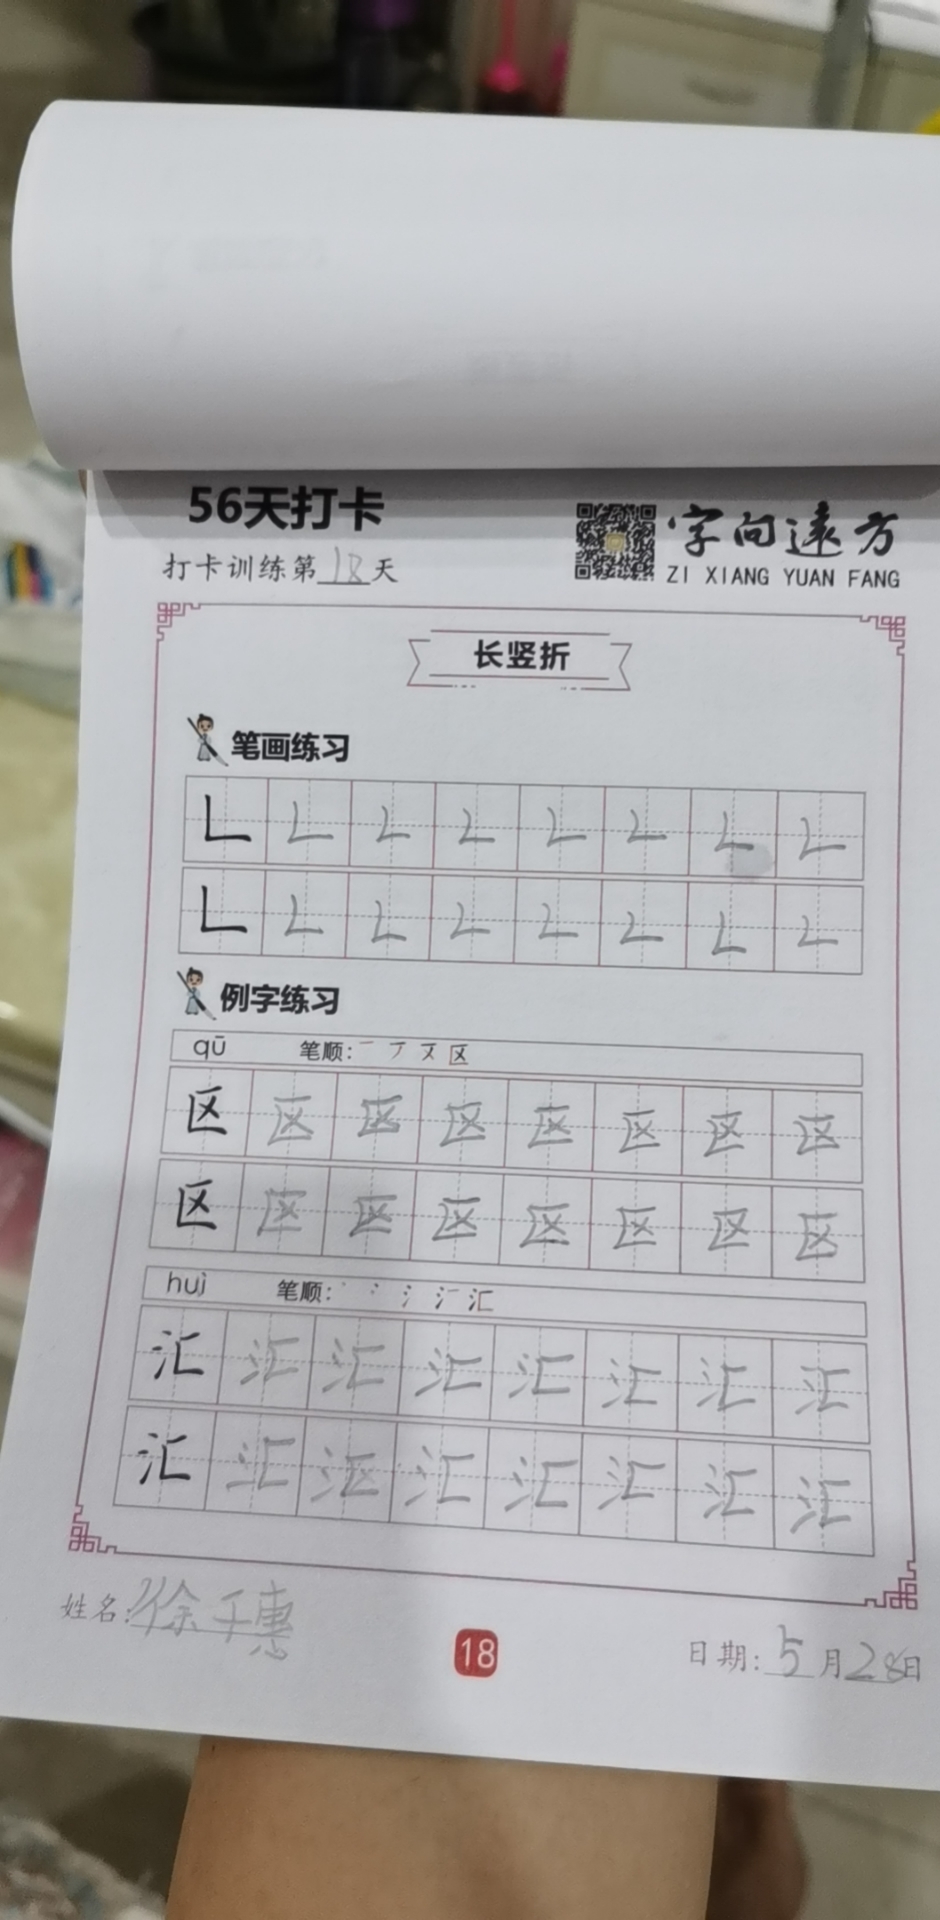 56天打卡
字向遠方
打卡训练第18天
ZI XIANG YUAN FANG
长竖折
笔画练习
例字练习
qū 笔顺: 区
区 区 区 区 区 区 区 区
区 区 区 区 区 区 区 区
huì 笔顺: 汇
汇 汇 汇 汇 汇 汇 汇 汇
汇 汇 汇 汇 汇 汇 汇 汇
姓名: 徐千惠
18
日期: 5月28日